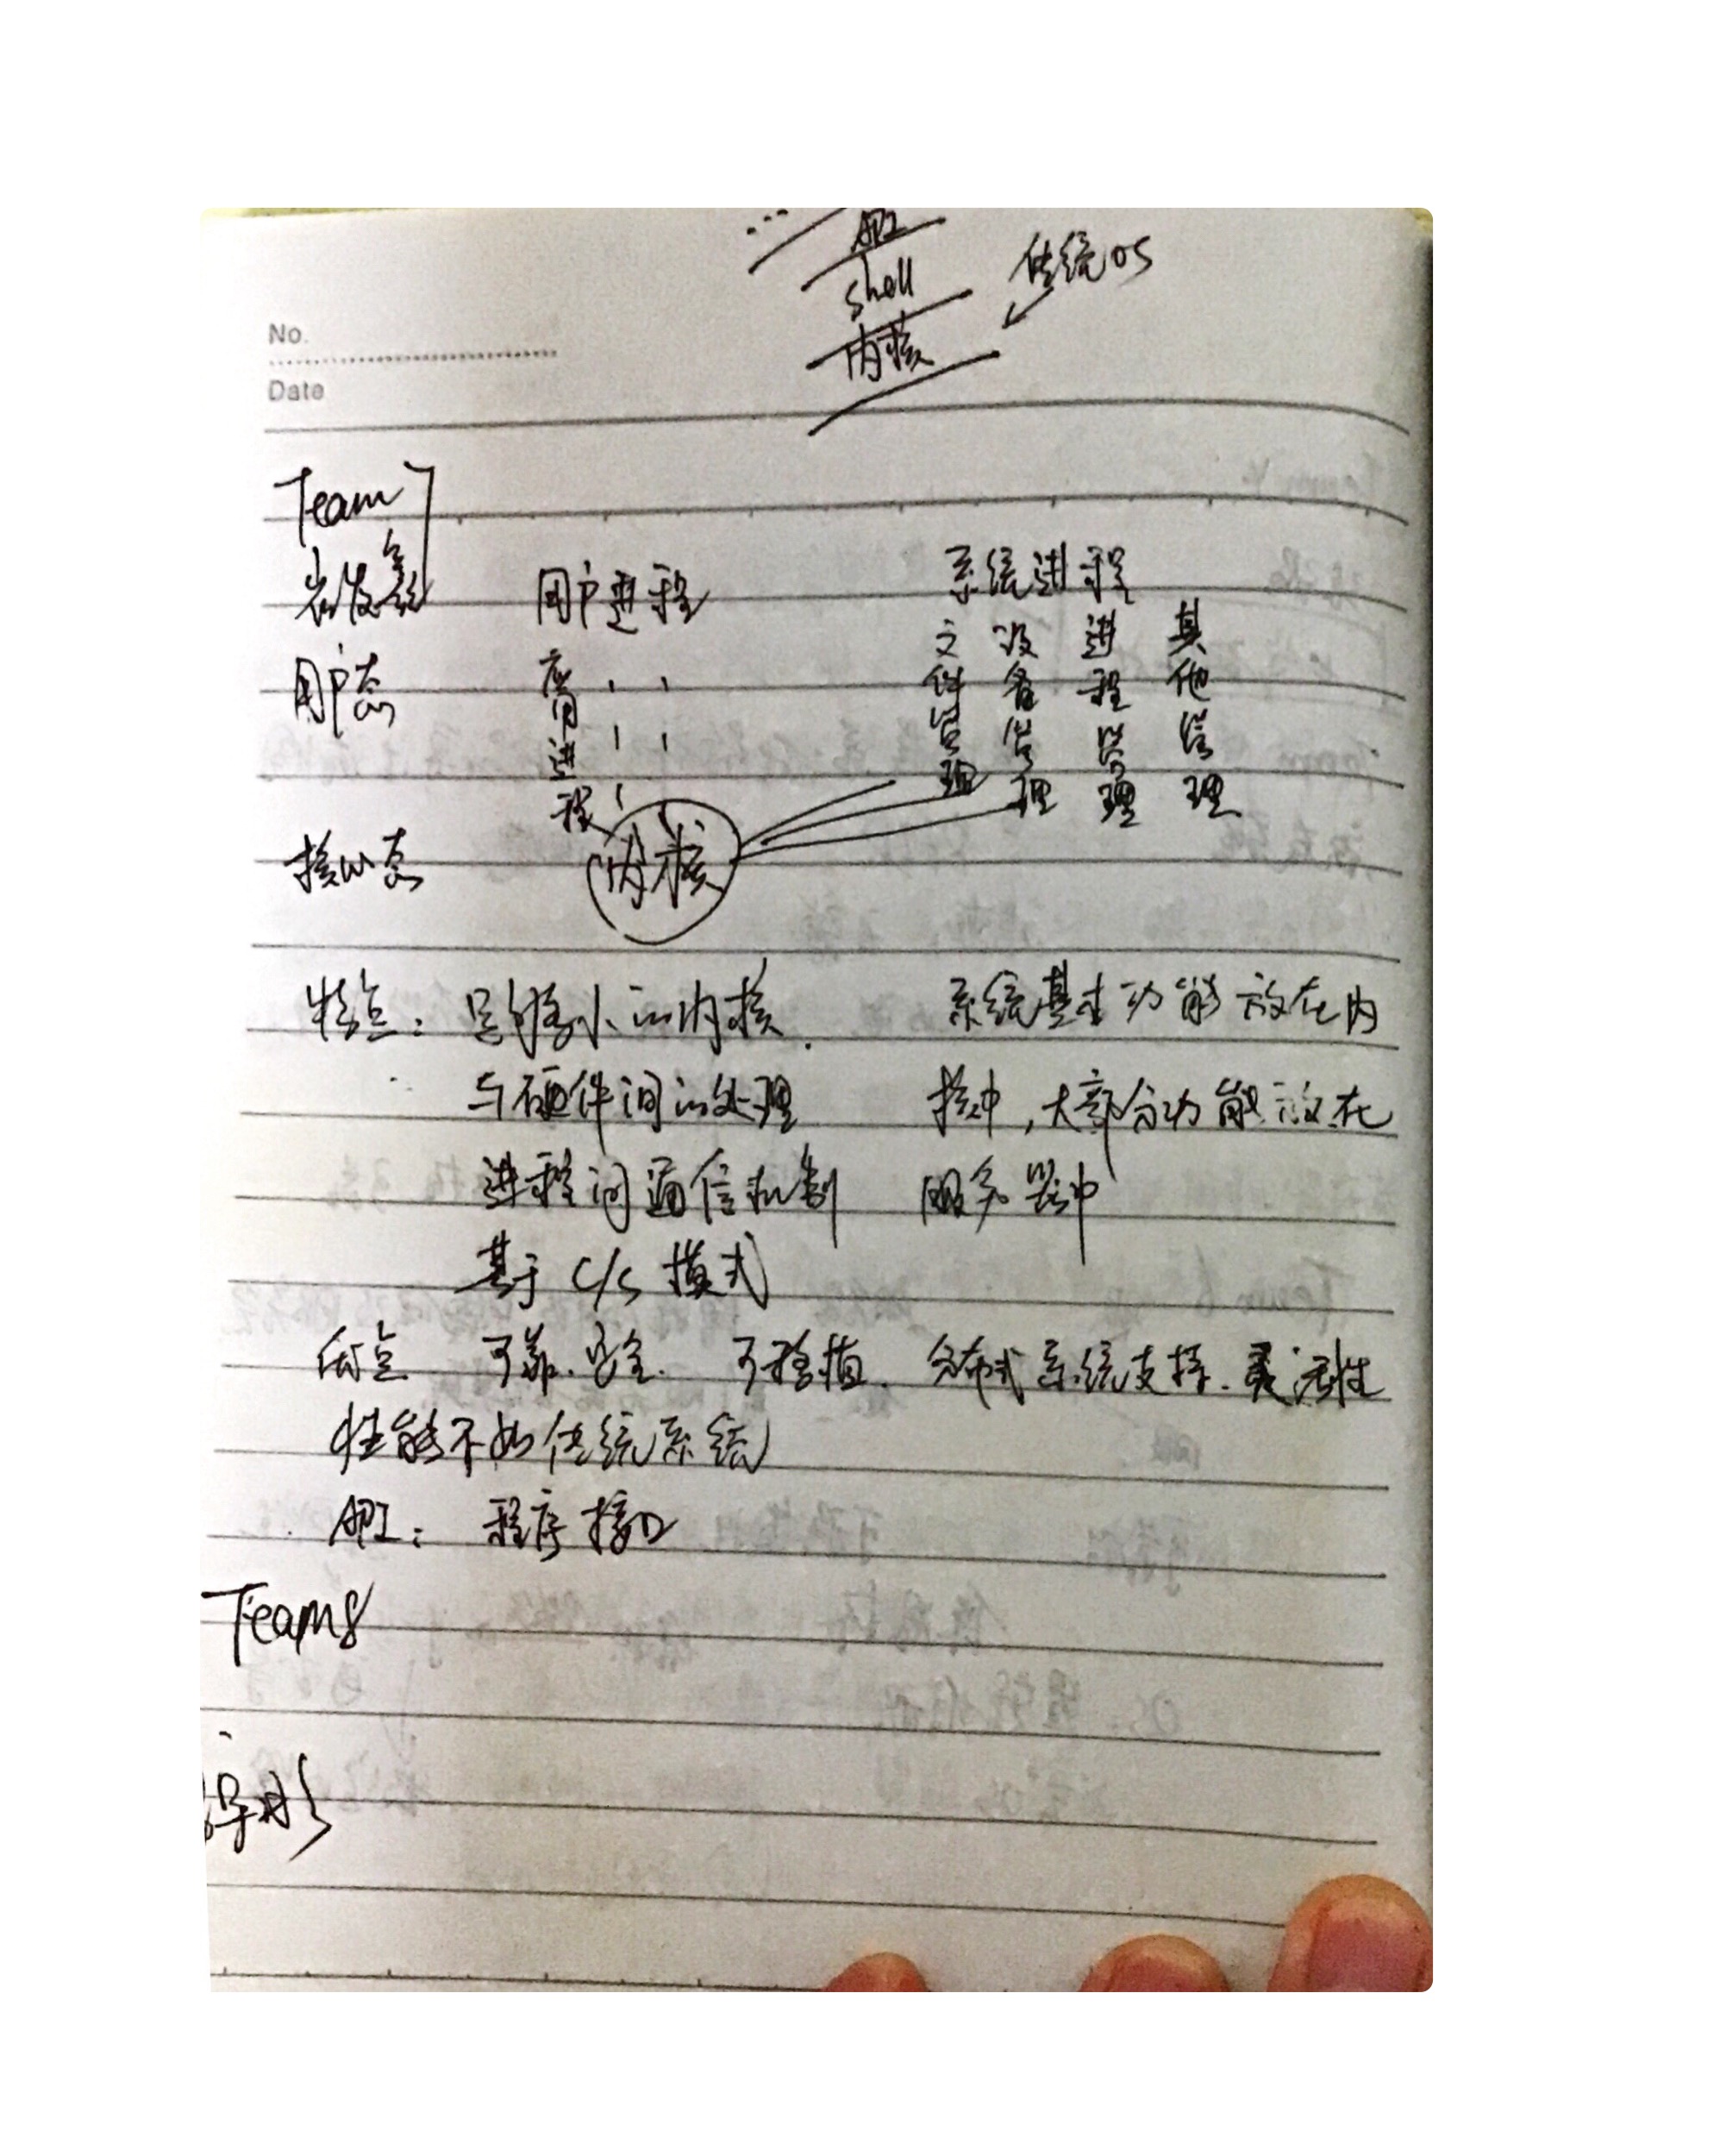 API
shell
传统OS
内核
No.
Date
Team 7
用户进程
系统进程
用户态
应用进程
文件管理
设备管理
进程管理
其他管理
核心态
内核
特点：足够小的内核.
系统基本功能放在内
与硬件间的处理
核中,大部分功能放在
进程间通信机制
服务器中
基于 C/S 模式
优点 可靠.安全. 可移植. 分布式系统支持.灵活性
性能不如传统系统
API： 程序接口
Team8